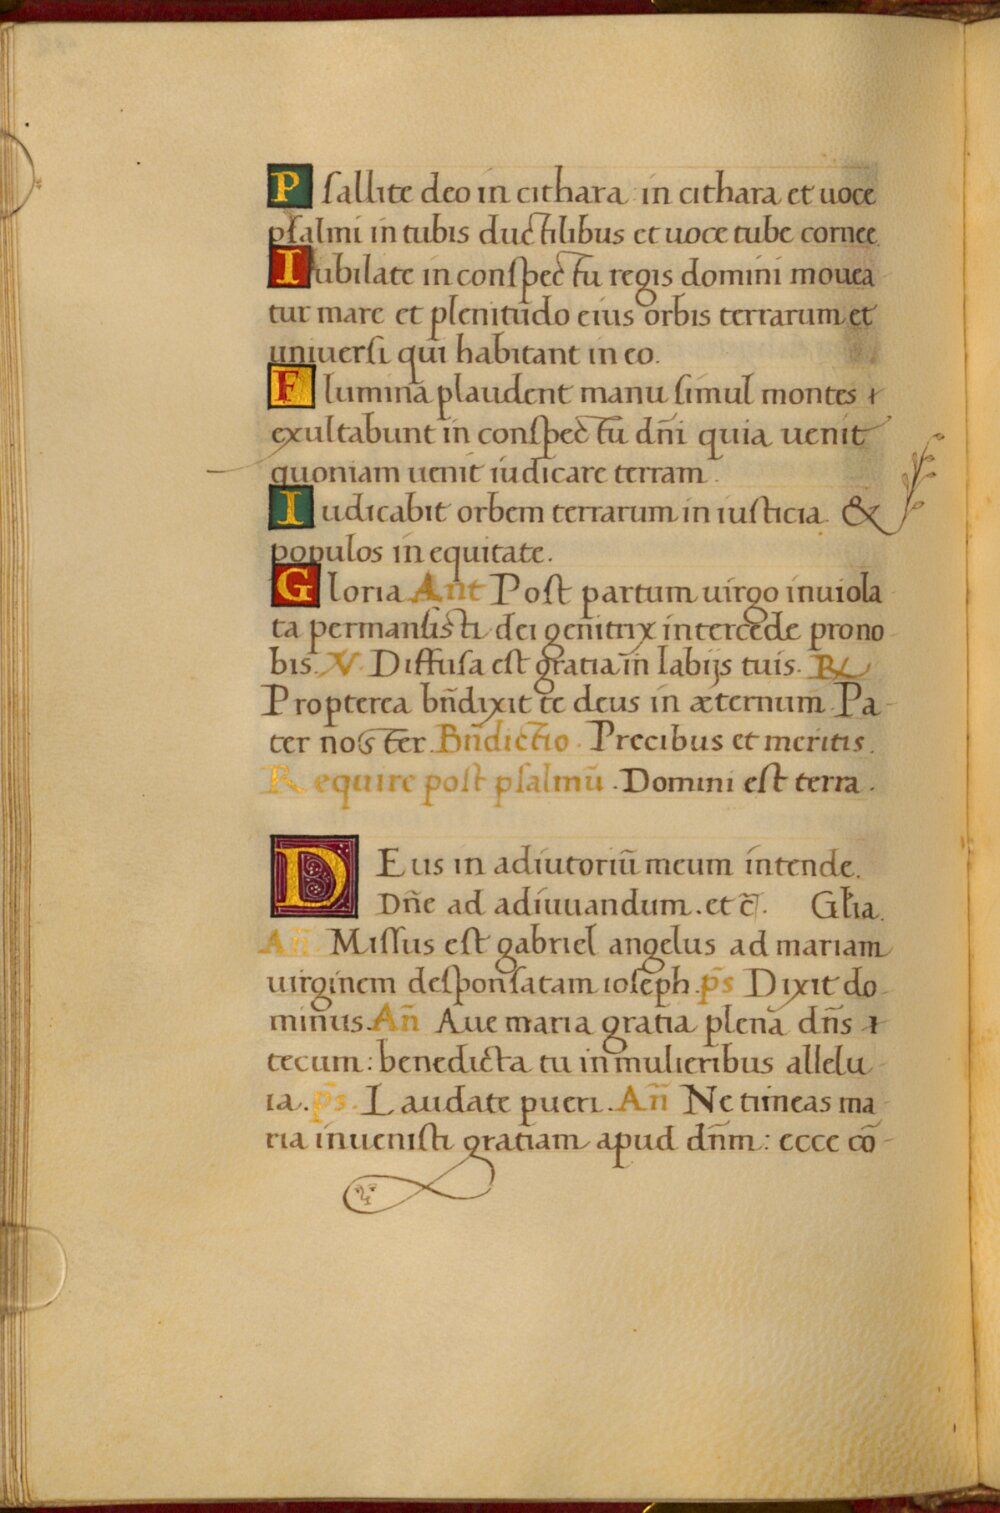 Psallite deo in cithara in cithara et uoce
psalmi in tubis ductilibus et uoce tube cornee
Iubilate in conspectu regis domini mouea
tur mare et plenitudo eius orbis terrarum et
uniuersi qui habitant in eo.
Flumina plaudent manu simul montes
exultabunt in conspectu dn̄i quia uenit
quoniam uenit iudicare terram.
Iudicabit orbem terrarum in iusticia. &
populos in equitate.
Gloria Ant Post partum uirgo inuiola
ta permansisti dei genitrix intercede prono
bis. V. Diffusa est gratia in labijs tuis. ℞
Propterea bn̄dixit te deus in æternum. Pa
ter noster. Bn̄dictio. Precibus et meritis.
Require post psalmū. Domini est terra.
DEus in adiutoriū meum intende.
Dn̄e ad adiuuandum. et c̄. Gl̄ia.
An̄. Missus est gabriel angelus ad mariam
uirginem desponsatam ioseph. p̄s Dixit do
minus. An̄ Aue maria gratia plena dn̄s
tecum: benedicta tu in mulieribus allelu
ia. p̄s. Laudate pueri. An̄ Ne timeas ma
ria inuenisti gratiam apud dn̄m: ecce cō